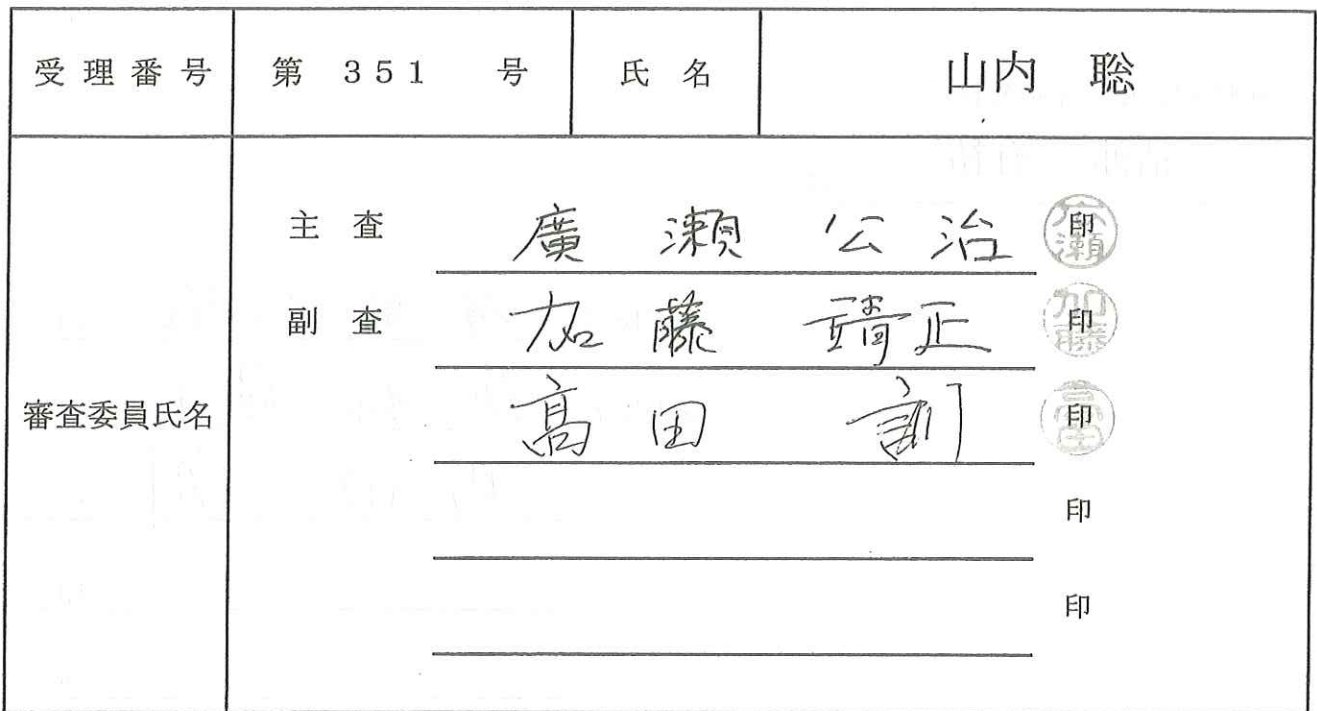 受理番号 第 351 号 氏名 山内 聡
審査委員氏名
主査 廣瀬公治 印
副査 加藤靖正 印
髙田 訓 印
印
印